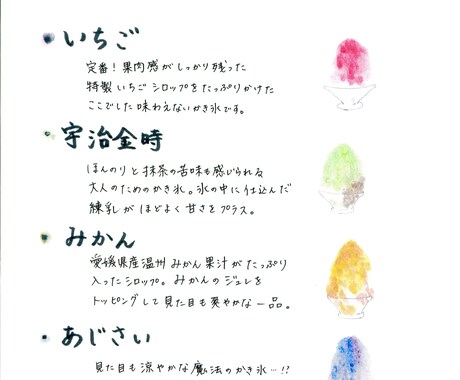 いちご
定番！果肉感がしっかり残った
特製いちごシロップをたっぷりかけた
ここでした味わえないかき氷です。
宇治金時
ほんのりと抹茶の苦味も感じられる
大人のためのかき氷。氷の中に仕込んだ
練乳がほどよく甘さをプラス。
みかん
愛媛県産温州みかん果汁がたっぷり
入ったシロップ。みかんのジュレを
トッピングして見た目も爽やかな一品。
あじさい
見た目も涼やかな魔法のかき氷…!?